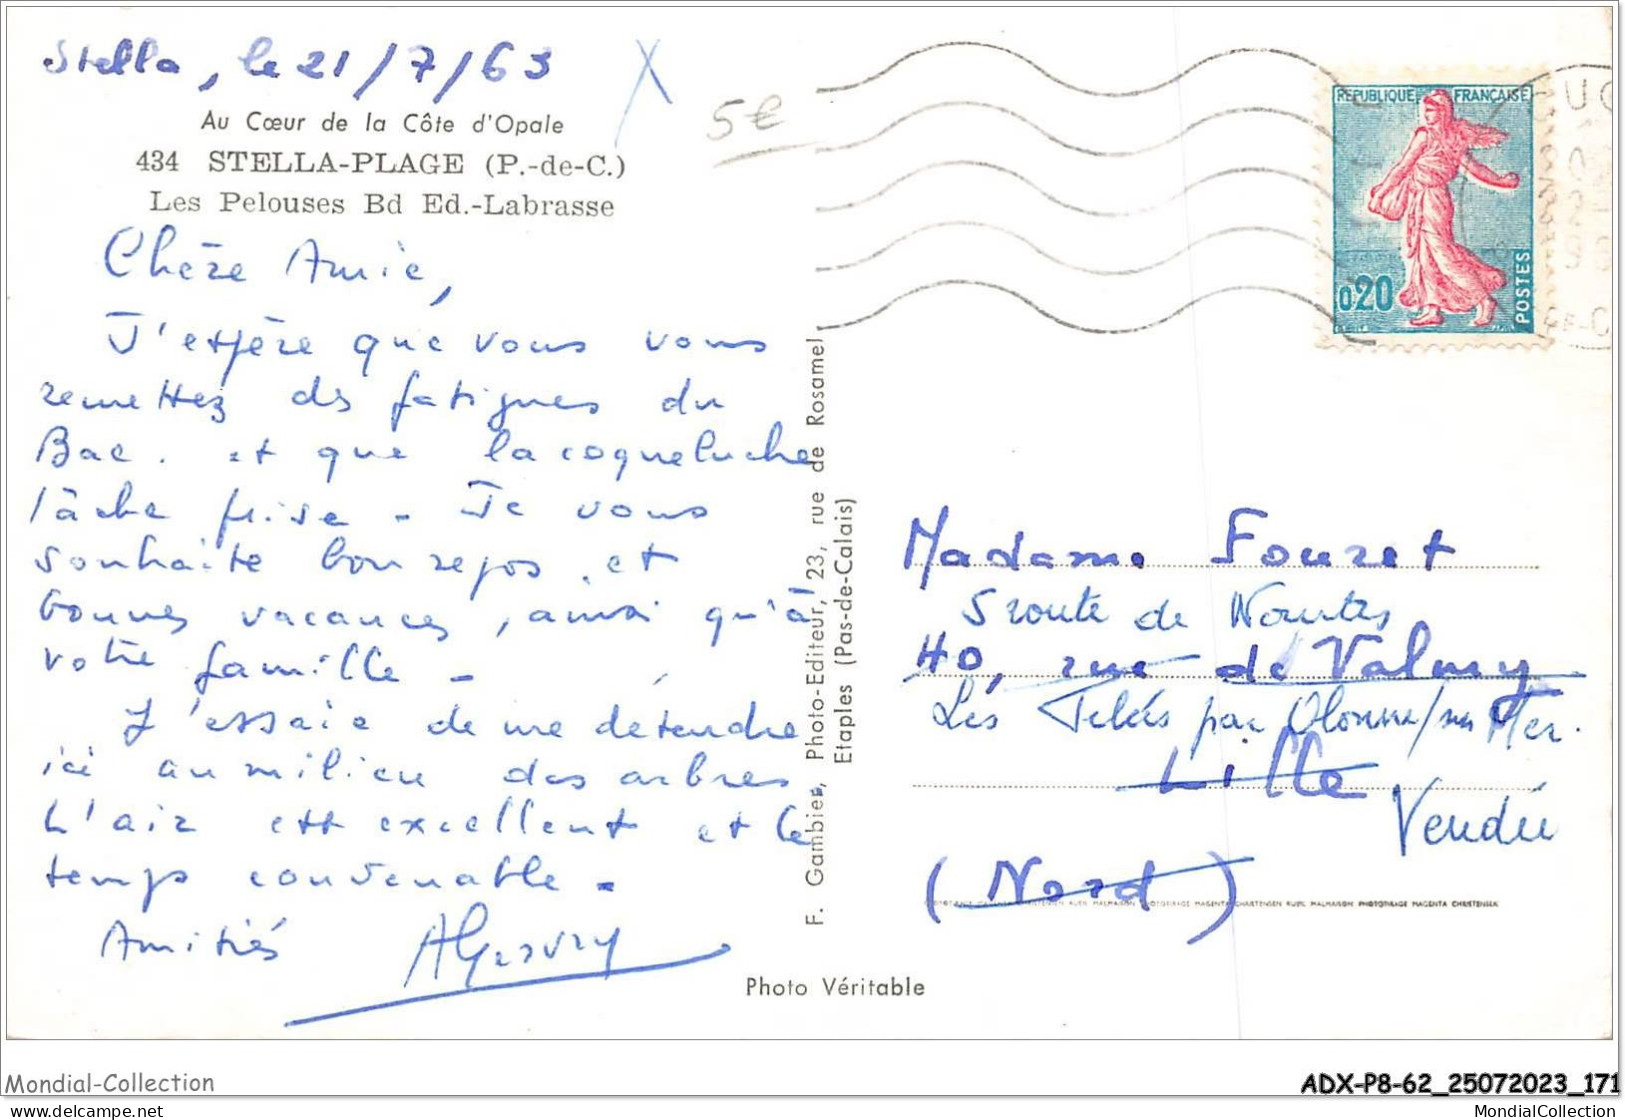 Stella, le 21/7/63
Au Cœur de la Côte d'Opale
434 STELLA-PLAGE (P.-de-C.)
Les Pelouses Bd Ed.-Labrasse
5€
Chère Amie,
J'espère que vous vous
remettez des fatigues du
Bac. et que la coqueluche
lâche prise - Je vous
souhaite bon repos, et
bonnes vacances, ainsi qu'à
votre famille -
J'essaie de me détendre
ici au milieu des arbres
L'air est excellent et le
temps convenable -
Amitiés
F. Gambier, Photo-Editeur, 23, rue de Rosamel
Etaples (Pas-de-Calais)
Photo Véritable
REPUBLIQUE FRANÇAISE
0,20
POSTES
Madame Fouret
5 route de Nantes
40, rue de Valmy
Les par Olonne/sur Mer.
Lille
Vendée
(Nord)
Mondial-Collection
ADX-P8-62_25072023_171
www.delcampe.net
MondialCollection